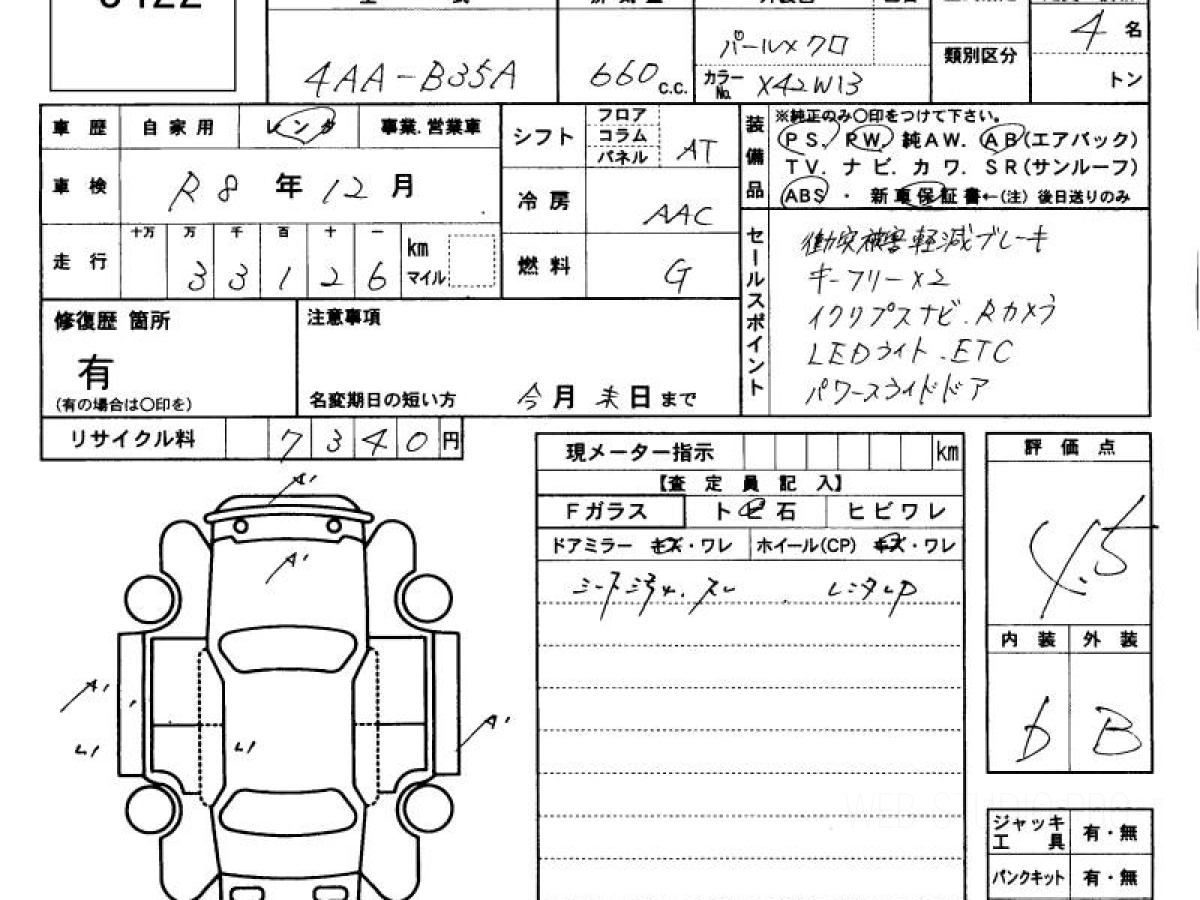 4AA-B35A
660 c.c.
パール×クロ
カラーNo. X42W13
類別区分
4 名
トン
車歴 自家用 レンタ 事業.営業車
シフト フロア コラム パネル AT
装備品
※純正のみ〇印をつけて下さい。
PS. PW. 純AW. AB(エアバック)
TV. ナビ. カワ. SR(サンルーフ)
ABS ・ 新車保証書←(注) 後日送りのみ
車検 R8年12月
冷房 AAC
走行 十万 万 千 百 十 一
33126 km マイル
燃料 G
セールスポイント
衝突被害軽減ブレーキ
キーフリー×2
イクリプスナビ.Rカメラ
LEDライト.ETC
パワースライドドア
修復歴 箇所
有
(有の場合は〇印を)
注意事項
名変期日の短い方 今月末日まで
リサイクル料 7340円
現メーター指示 km
【査定員記入】
Fガラス トビ石 ヒビワレ
ドアミラー キズ・ワレ ホイール(CP) キズ・ワレ
シート汚れ.スレ レンタUP
評価点
4.5
内装 外装
b B
A'
A'
A'
L1
L1
A'
ジャッキ工具 有・無
パンクキット 有・無